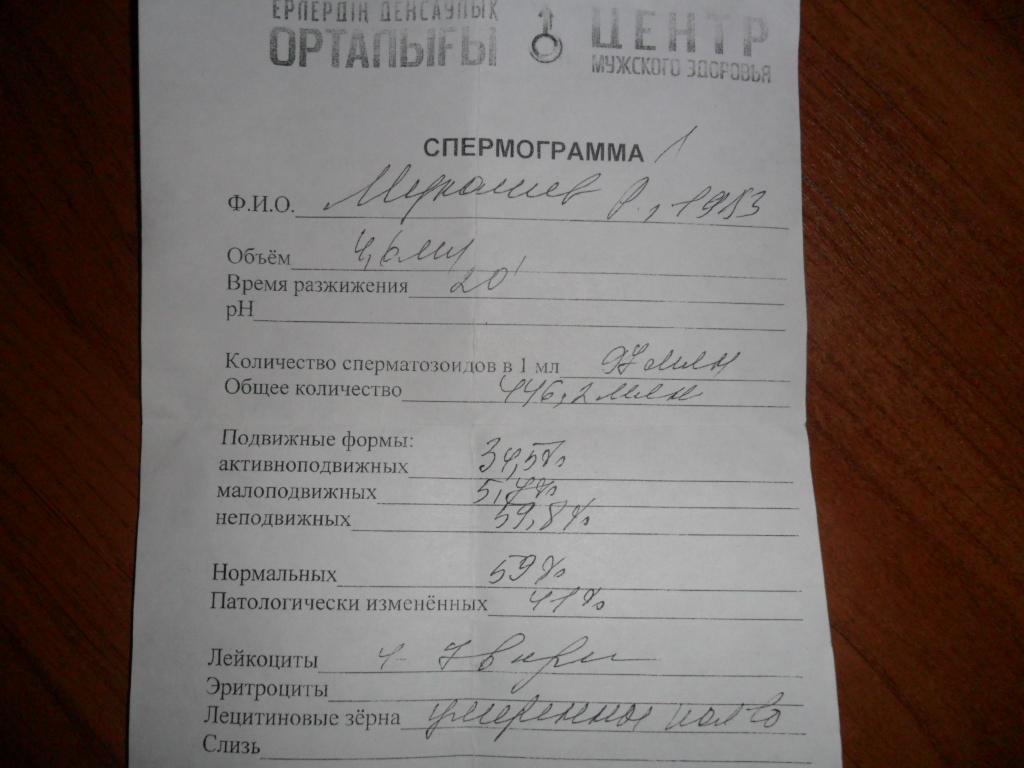 ЕРЛЕРДІҢ ДЕНСАУЛЫҚ
ОРТАЛЫҒЫ
ЦЕНТР
МУЖСКОГО ЗДОРОВЬЯ
СПЕРМОГРАММА 1
Ф.И.О. Р., 1983
Объём 4,6 мл
Время разжижения 20'
pH
Количество сперматозоидов в 1 мл 97 млн
Общее количество 446,2 млн
Подвижные формы:
активноподвижных 34,5%
малоподвижных 5,7%
неподвижных 59,8%
Нормальных 59%
Патологически изменённых 41%
Лейкоциты 4-7 в п/зр
Эритроциты
Лецитиновые зёрна умеренное кол-во
Слизь